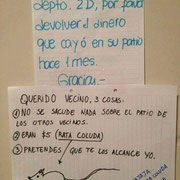 depto. 2D, por favor
devolver el dinero
que cayó en su patio
hace 1 mes.
Gracias.-
QUERIDO VECINO, 3 COSAS:
① NO SE SACUDE NADA SOBRE EL PATIO DE
LOS OTROS VECINOS.
② ERAN $5 (RATA COLUDA)
③ PRETENDES QUE TE LOS ALCANCE YO.
RATA
COLUDA